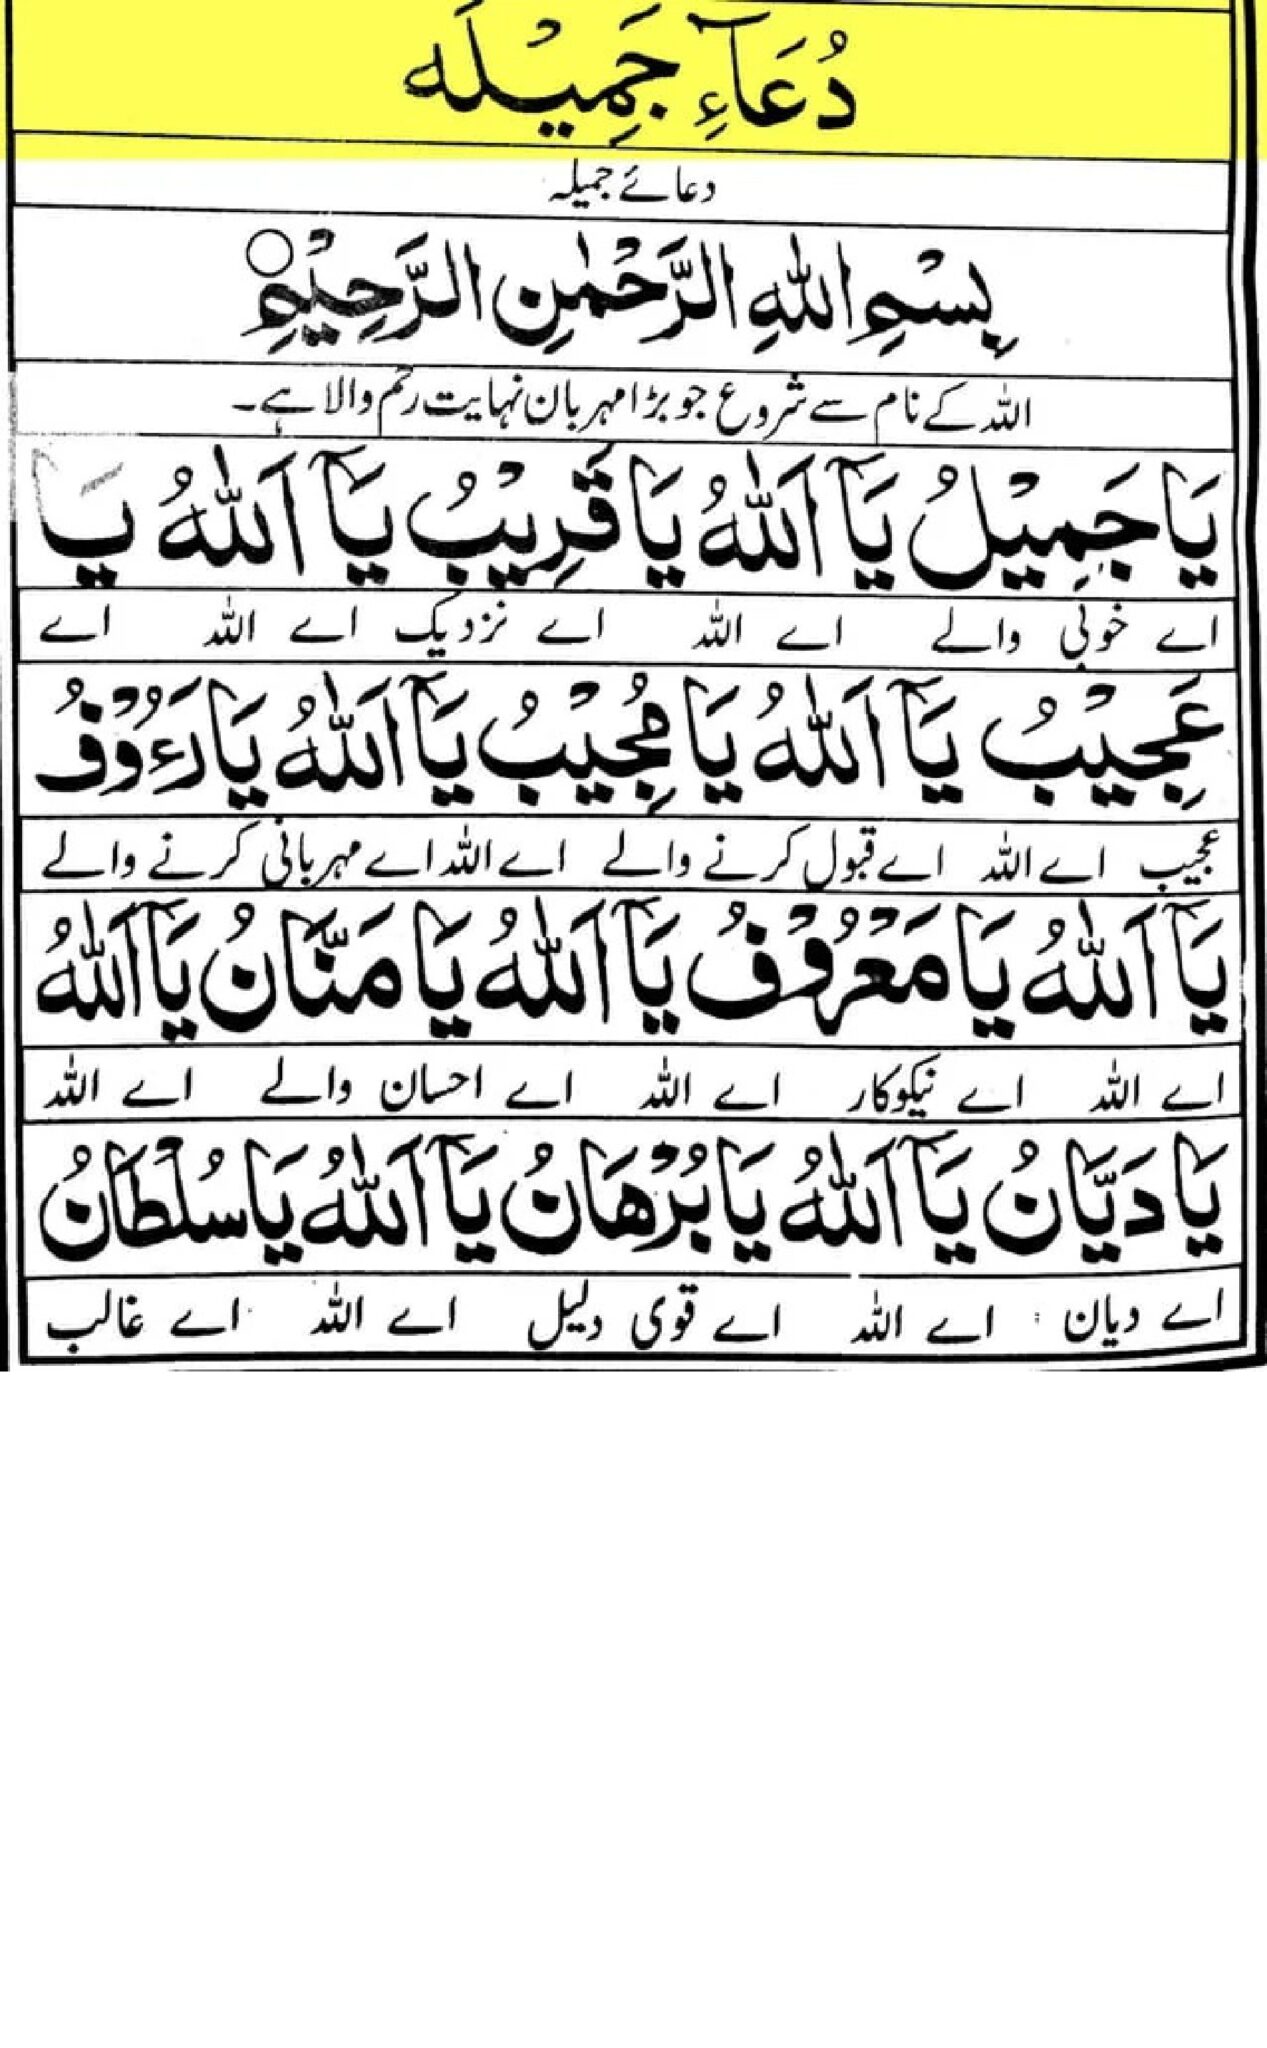 دُعَآءِ جَمِيْلَه
دعائے جمیلہ
بِسْمِ اللّٰهِ الرَّحْمٰنِ الرَّحِيْمِ○
اللہ کے نام سے شروع جو بڑا مہربان نہایت رحم والا ہے۔
يَا جَمِيْلُ يَآ اَللّٰهُ يَا قَرِيْبُ يَآ اَللّٰهُ يَا
اے خوبی والے اے اللہ اے نزدیک اے اللہ اے
عَجِيْبُ يَآ اَللّٰهُ يَا مُجِيْبُ يَآ اَللّٰهُ يَا رَءُوْفُ
عجیب اے اللہ اے قبول کرنے والے اے اللہ اے مہربانی کرنے والے
يَآ اَللّٰهُ يَا مَعْرُوْفُ يَآ اَللّٰهُ يَا مَنَّانُ يَآ اَللّٰهُ
اے اللہ اے نیکوکار اے اللہ اے احسان والے اے اللہ
يَا دَيَّانُ يَآ اَللّٰهُ يَا بُرْهَانُ يَآ اَللّٰهُ يَا سُلْطَانُ
اے دیان اے اللہ اے قوی دلیل اے اللہ اے غالب